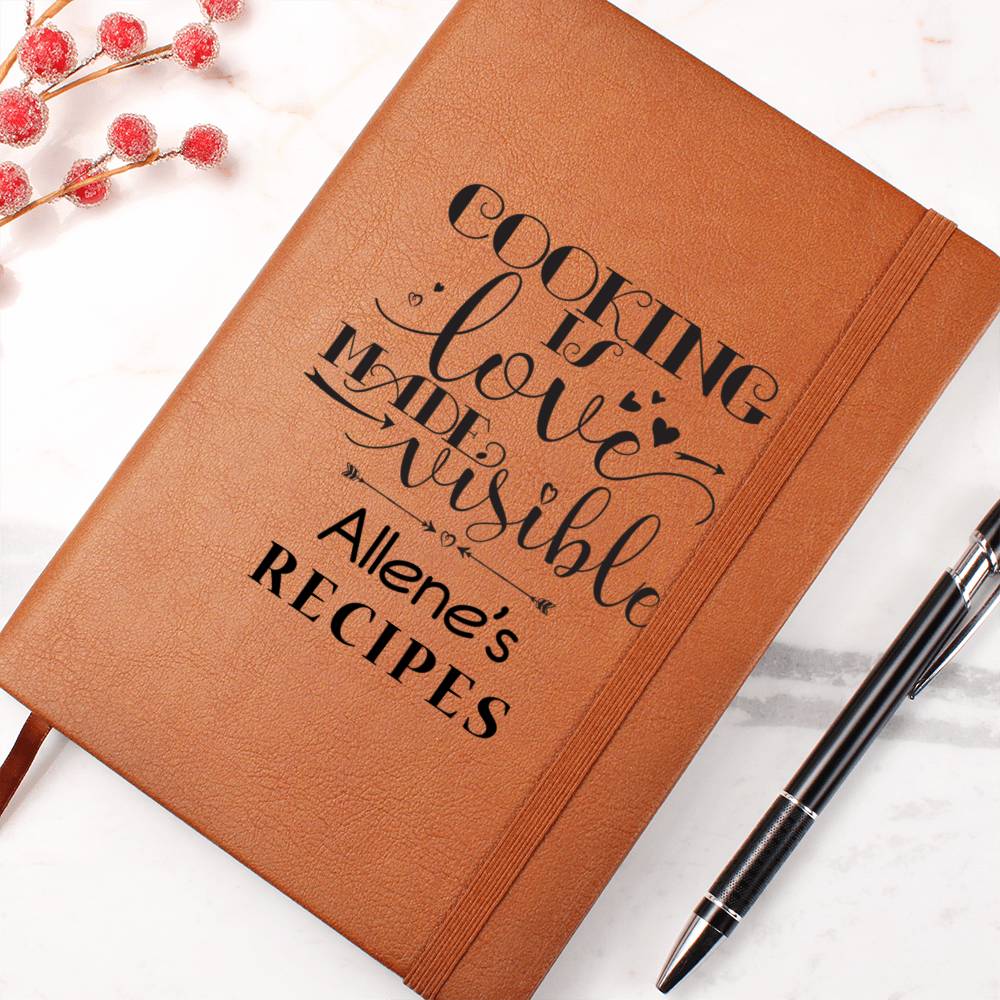 COOKING
IS
love
MADE
visible
Allene's
RECIPES